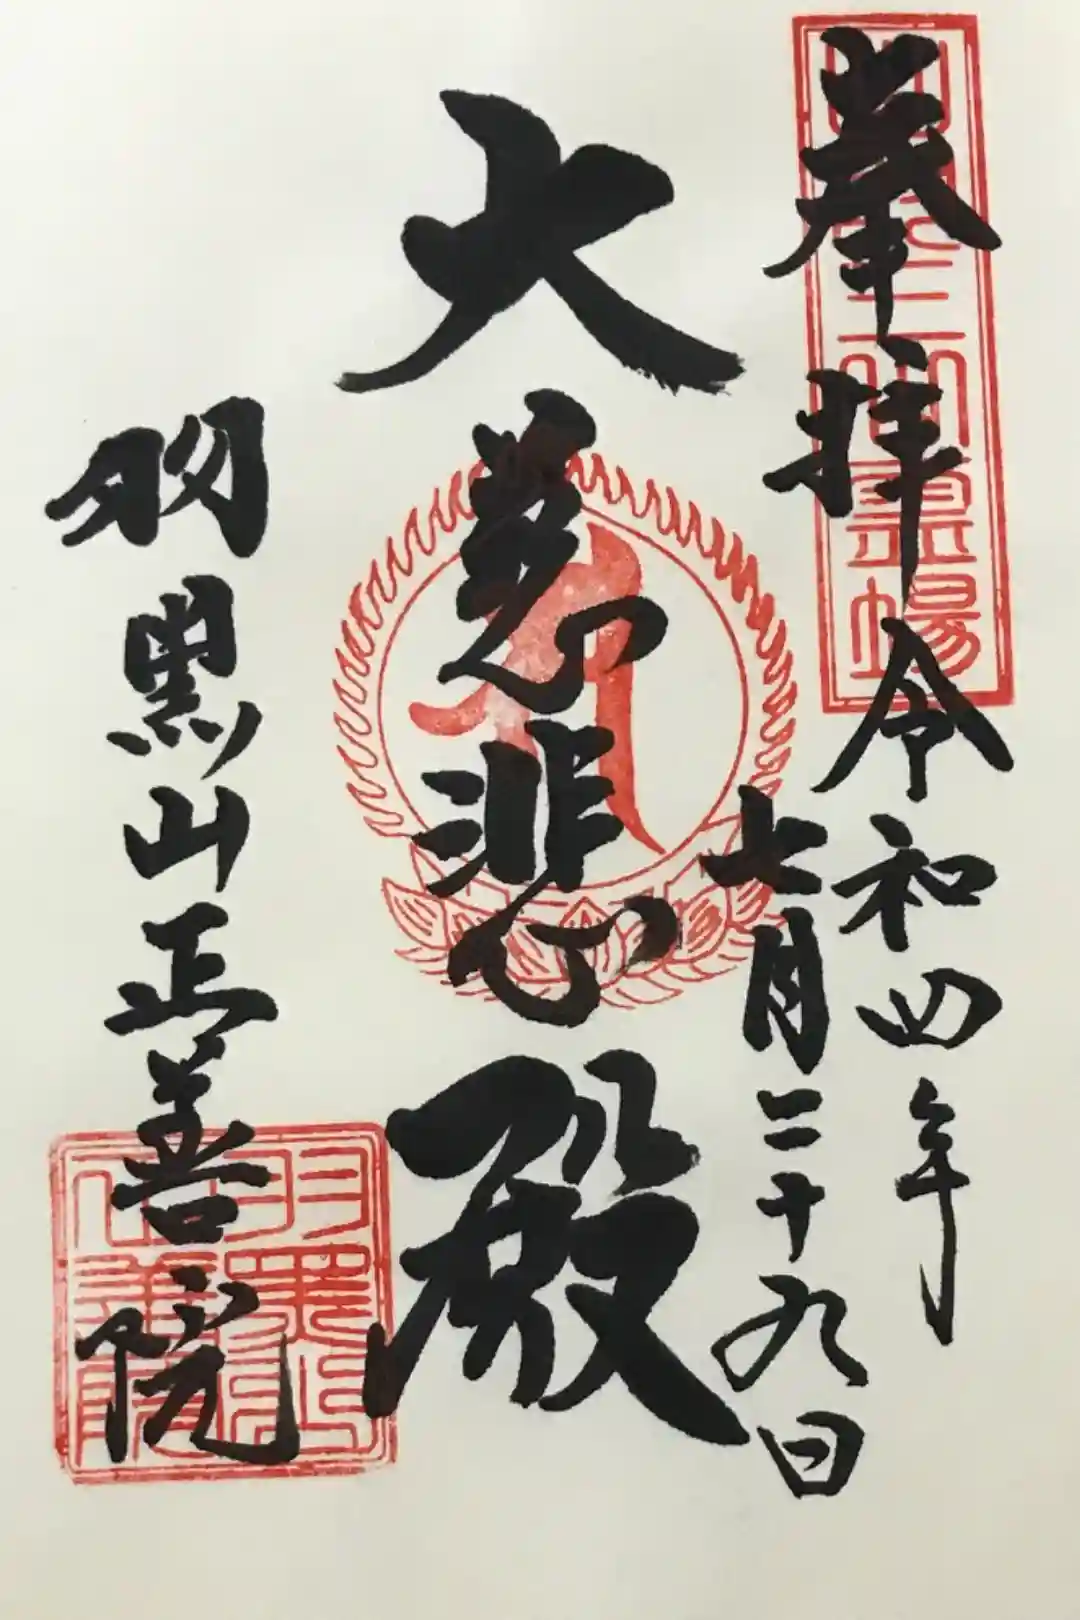 奉拝
令和四年
七月二十九日
大慈悲殿
羽黒山正善院
羽黒山正善院